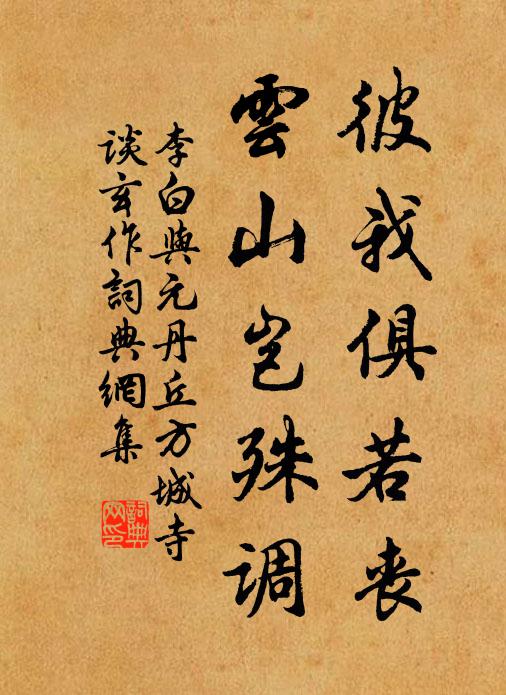 彼我俱若丧
雲山岂殊调
李白與元丹丘方城寺
谈玄作詞典網集
詞典网印